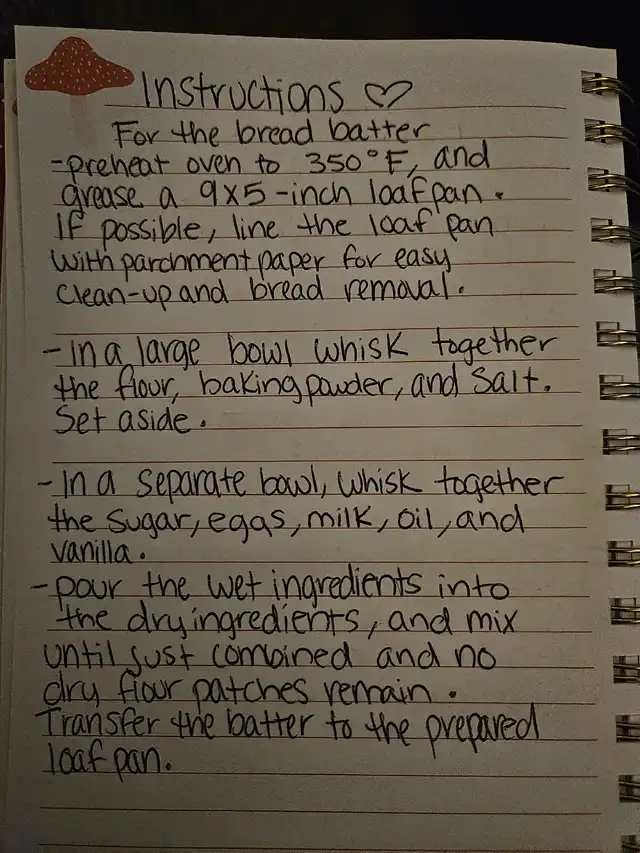 Instructions ♡
For the bread batter
-preheat oven to 350°F, and
grease a 9x5-inch loaf pan.
If possible, line the loaf pan
with parchment paper for easy
clean-up and bread removal.
- In a large bowl whisk together
the flour, baking powder, and salt.
Set aside.
- In a separate bowl, whisk together
the sugar, eggs, milk, oil, and
vanilla.
- pour the wet ingredients into
the dry ingredients, and mix
until just combined and no
dry flour patches remain.
Transfer the batter to the prepared
loaf pan.